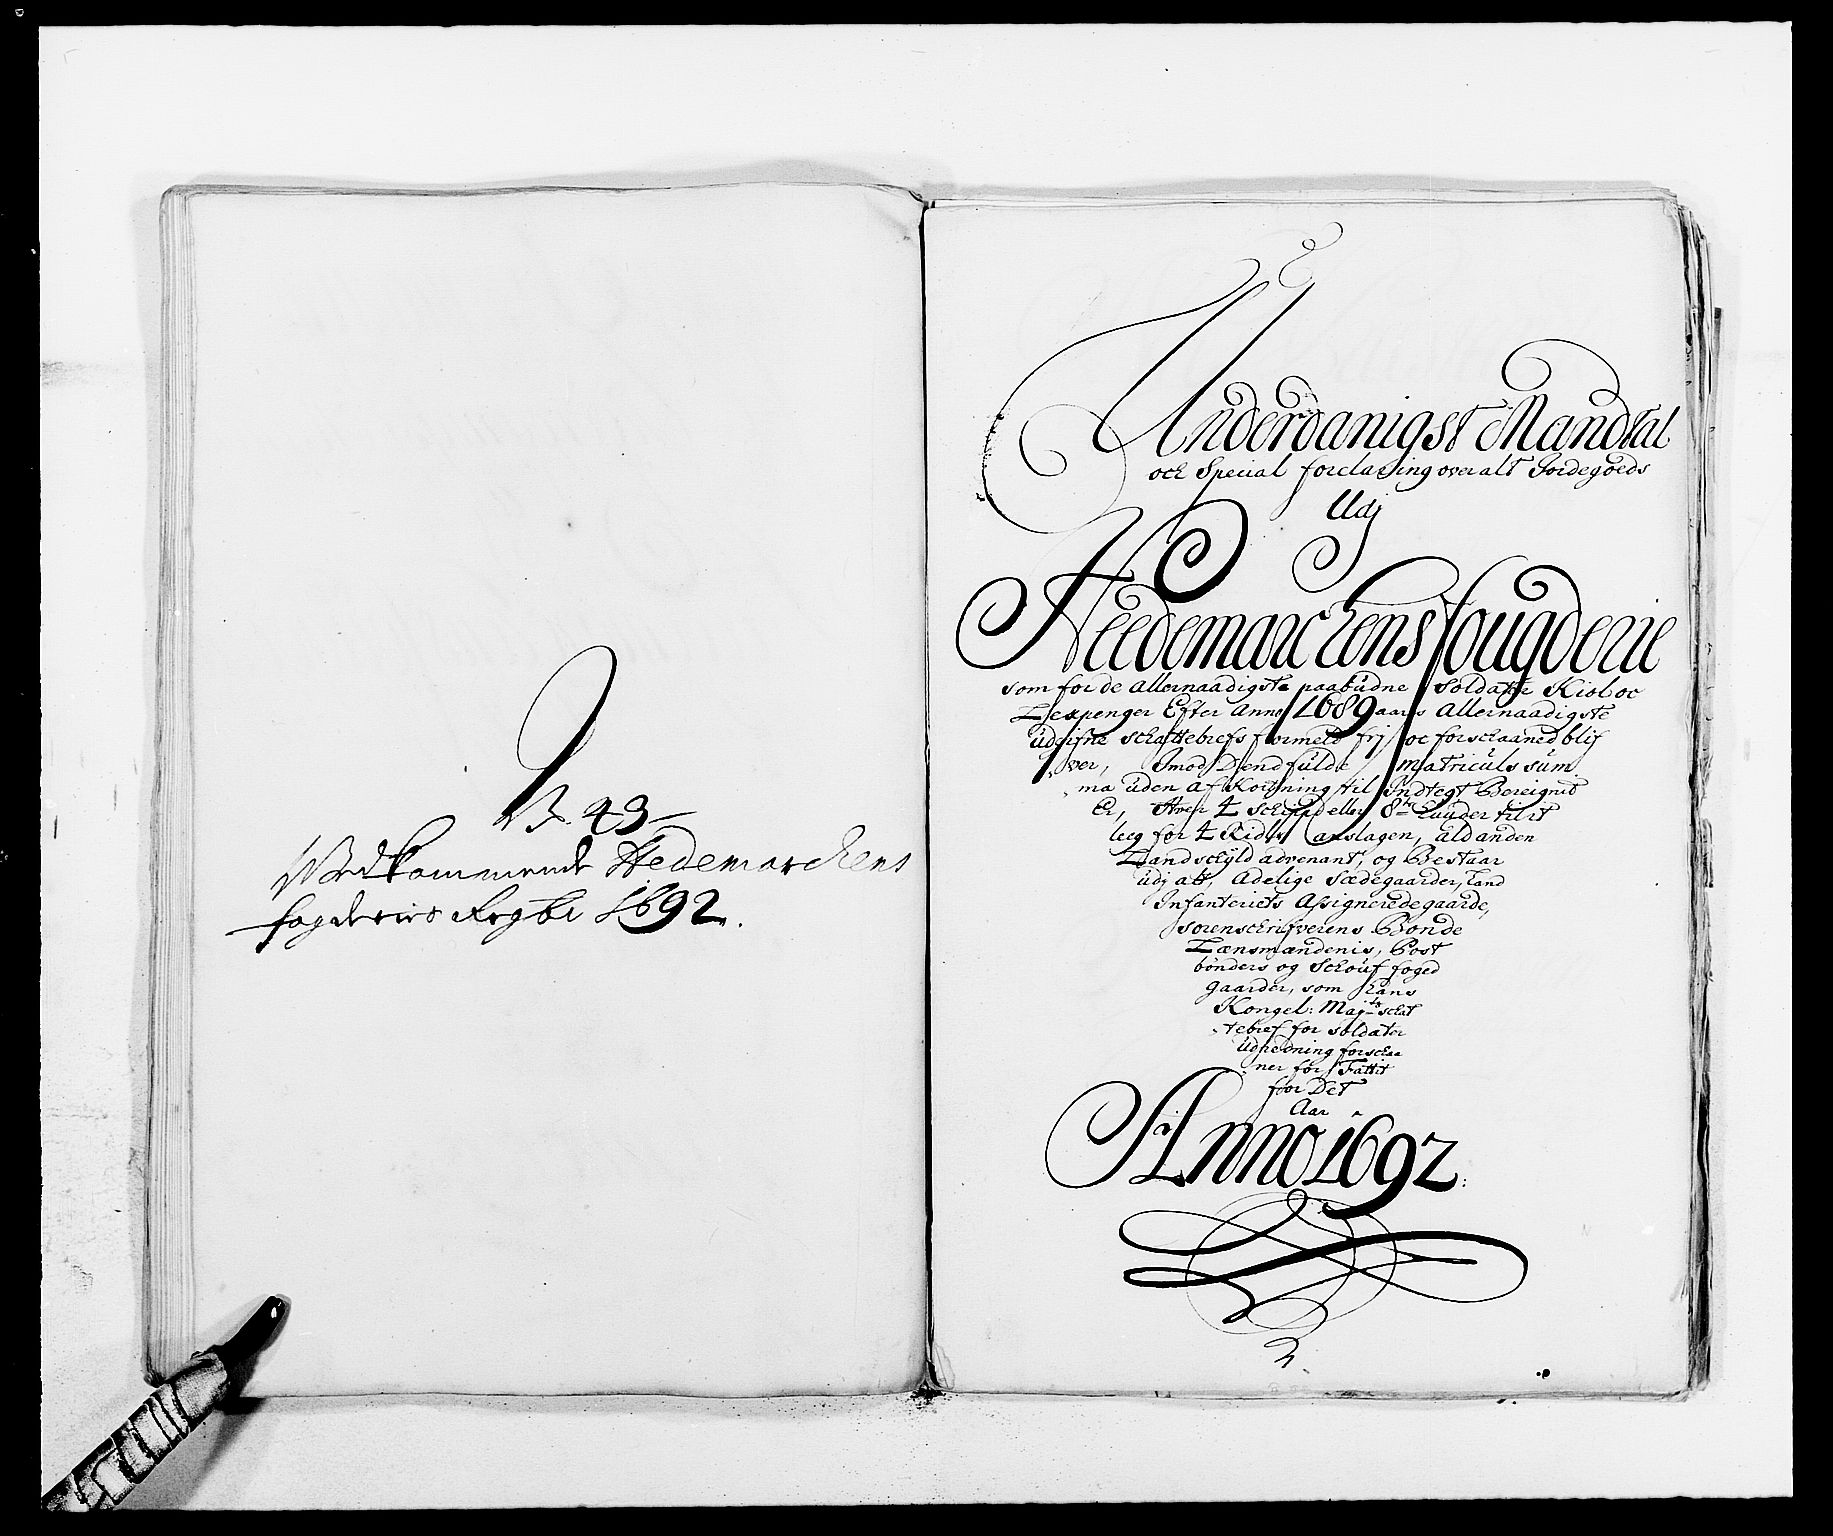 N. 43
Vedkommende Hedemarckens
fogderies Regbr 1692.
Underdanigst Mandtal
och Special forclaring over alt Jordegoeds
Udj
Heedemarckens fougderie
som for de allernaadigste paabudne soldatte Kiol oc
Lexpenger Efter Anno 1689 aars Allernaadigste
udgifne schattebrefs formeld frj oc forschaaned blif
ver, Imod Dend fulde matriculs sum
ma uden afkortning til Indtegt Bereignit
Er, Hver 4 schippd eller 8te huuder til it
leeg for 4 Rixdr anslagen, ald anden
Landschyld advenant, og Bestaar
udj att, Adelige Sædegaarder, Land
Infanteriets Assignerede gaarde,
sorenschrifverens Bonde
Lænsmændenis, Post
bønders og Schouf foged
gaarder, som hans
Kongel: Majts schat
tebref for soldater
udredning forschaa
ner for / Fattit
for Det
Aar
Anno 1692: